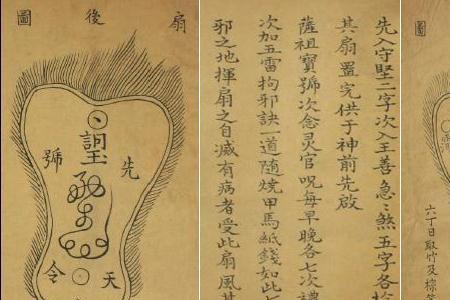 圖
六丁日取竹及棕
先入守堅二字次入王善急〻煞五字各
其扇置完供于神前先啟
薩祖寶號次念灵官咒每早晚各七次禮
次加五雷拘邪訣一道随燒甲馬紙錢如此
邪之地揮扇之自滅有病者受此扇風其
扇後圖
先天
號令